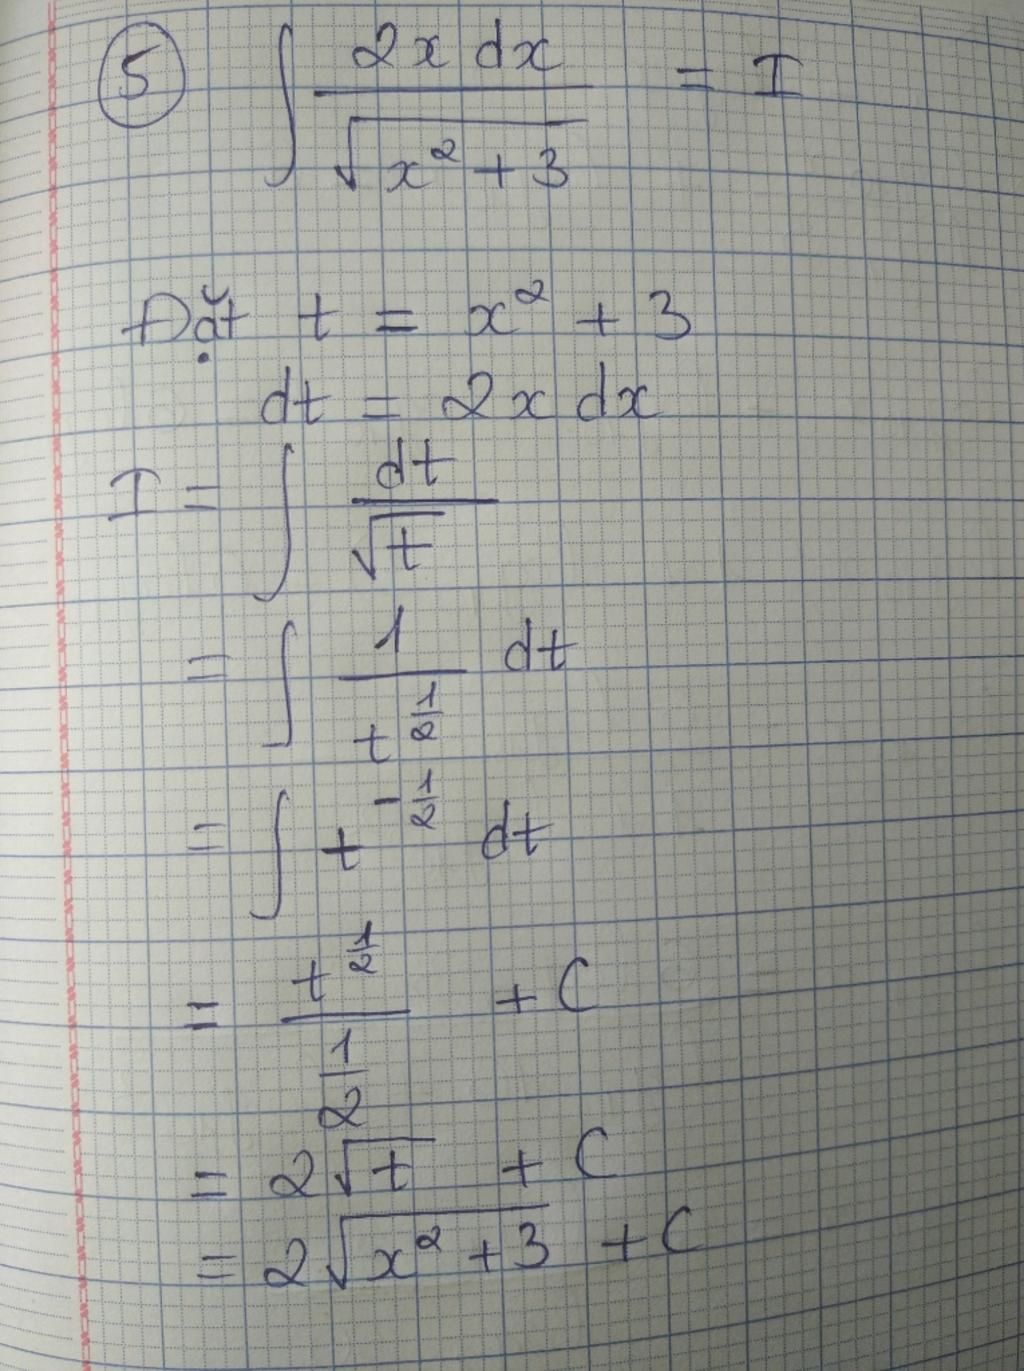 ⑤ ∫ 2x dx / √(x² + 3) = I
Đặt t = x² + 3
dt = 2x dx
I = ∫ dt / √t
= ∫ 1 / t^(1/2) dt
= ∫ t^(-1/2) dt
= t^(1/2) / (1/2) + C
= 2√t + C
= 2√(x² + 3) + C